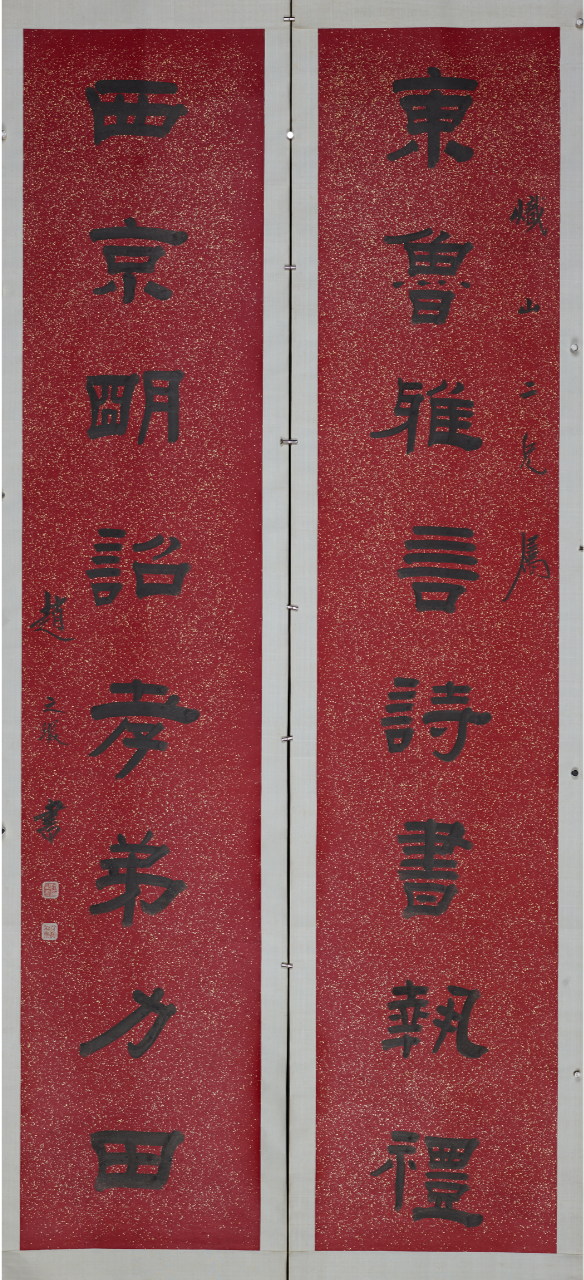 熾山二兄属
東魯雅言詩書執禮
西京明詔孝弟力田
趙之謙書